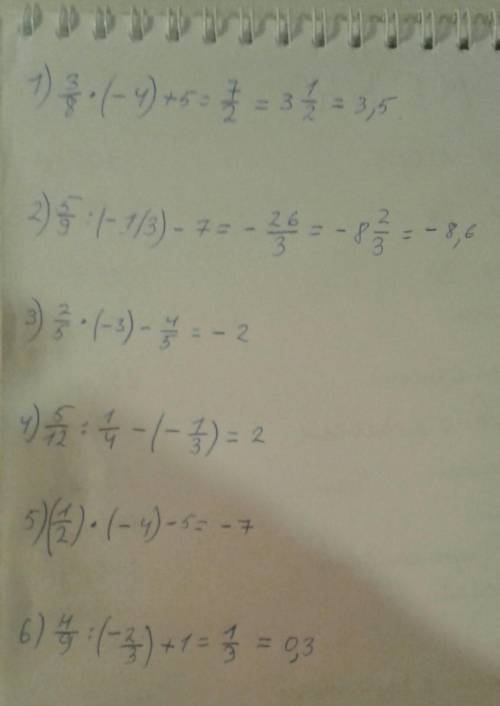 1) 3/8 · (-4) + 5 = 7/2 = 3 1/2 = 3,5
2) 5/9 : (-1/3) - 7 = - 26/3 = -8 2/3 = -8,6
3) 2/5 · (-3) - 4/5 = -2
4) 5/12 : 1/4 - (- 1/3) = 2
5) (1/2) · (-4) - 5 = -7
6) 4/9 : (- 2/3) + 1 = 1/3 = 0,3